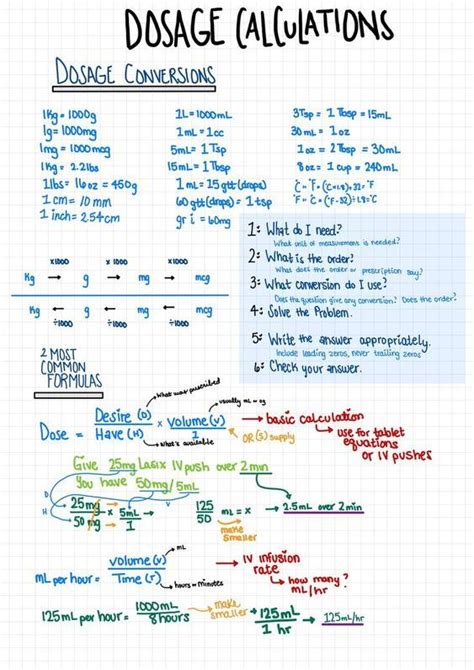 DOSAGE CALCULATIONS
DOSAGE CONVERSIONS
1Kg = 1000g
1g = 1000mg
1mg = 1000mcg
1Kg = 2.2lbs
1lbs = 16oz = 450g
1cm = 10mm
1inch = 2.54cm
1L = 1000mL
1mL = 1cc
5mL = 1Tsp
15mL = 1Tbsp
1mL = 15gtt (drops)
60gtt (drops) = 1tsp
gr i = 60mg
3Tsp = 1Tbsp = 15mL
30mL = 1oz
1oz = 2Tbsp = 30mL
8oz = 1cup = 240mL
1: What do I need?
What unit of measurement is needed?
2: What is the order?
What does the order or prescription say?
3: What conversion do I use?
Does the question give any conversion? Does the order?
4: Solve the Problem.
5: Write the answer appropriately.
Include leading zeros, never trailing zeros
6: Check your answer.
x1000 x1000 x1000
Kg → g → mg → mcg
Kg ← g ← mg ← mcg
÷1000 ÷1000 ÷1000
2 MOST
COMMON
FORMULAS
what was prescribed
usually mL = cg
Dose = Desire (D) / Have (H) x volume (v) / 1
what's available
OR (S) supply
basic calculation
use for tablet
equations
or IV pushes
Give 25mg Lasix IV push over 2min
You have 50mg/5mL
D
H
V
25mg / 50mg x 5mL / 1
125 / 50 mL = x → 2.5mL over 2min
make
smaller
mL per hour = volume (v) / Time (T)
mL
hours = minutes
IV infusion
rate
how many?
mL/hr
125mL per hour = 1000mL / 8hours
make
smaller
125mL / 1hr → 125mL/hr